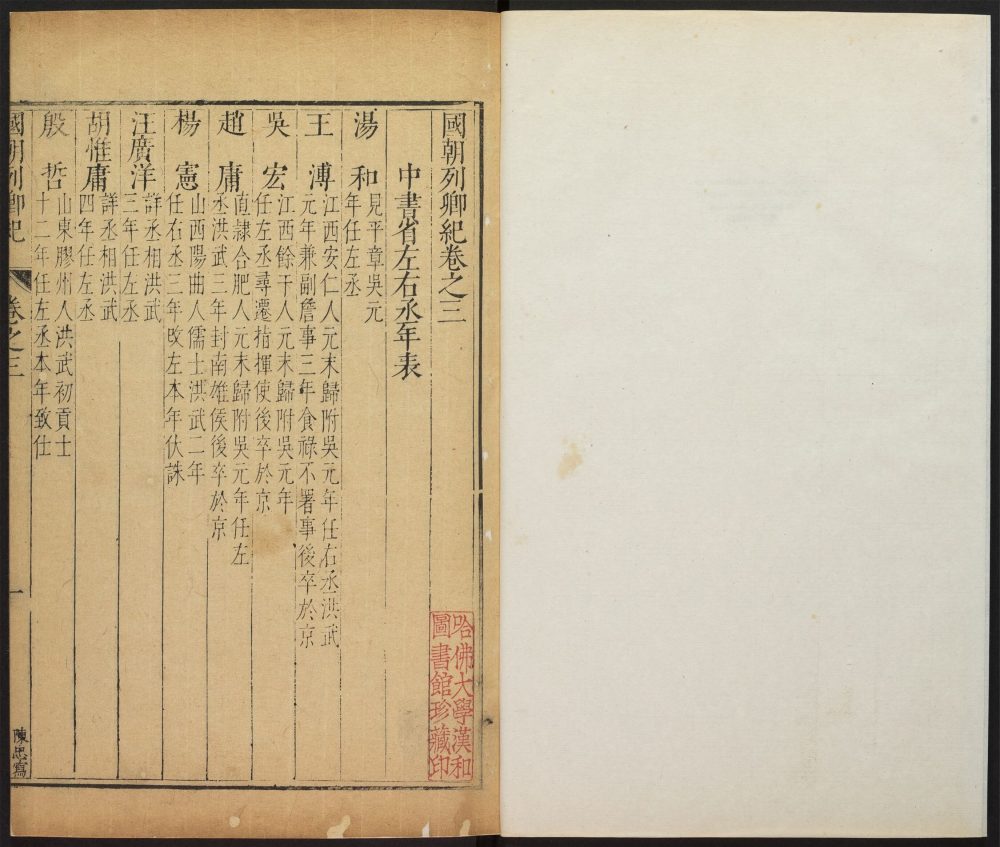 國朝列卿紀卷之三
中書省左右丞年表
湯和 見平章吳元
年任左丞
王溥 江西安仁人元末歸附吳元年任右丞洪武
元年兼副詹事三年食祿不署事後卒於京
吳宏 江西餘干人元末歸附吳元年
任左丞尋遷指揮使後卒於京
趙庸 直隸合肥人元末歸附吳元年任左
丞洪武三年封南雄侯後卒於京
楊憲 山西陽曲人儒士洪武二年
任右丞三年改左本年伏誅
汪廣洋 詳丞相洪武
三年任左丞
胡惟庸 詳丞相洪武
四年任左丞
殷哲 山東膠州人洪武初貢士
十二年任左丞本年致仕
國朝列卿紀 卷之三 一
陳忠寫
哈佛大學漢和
圖書館珍藏印